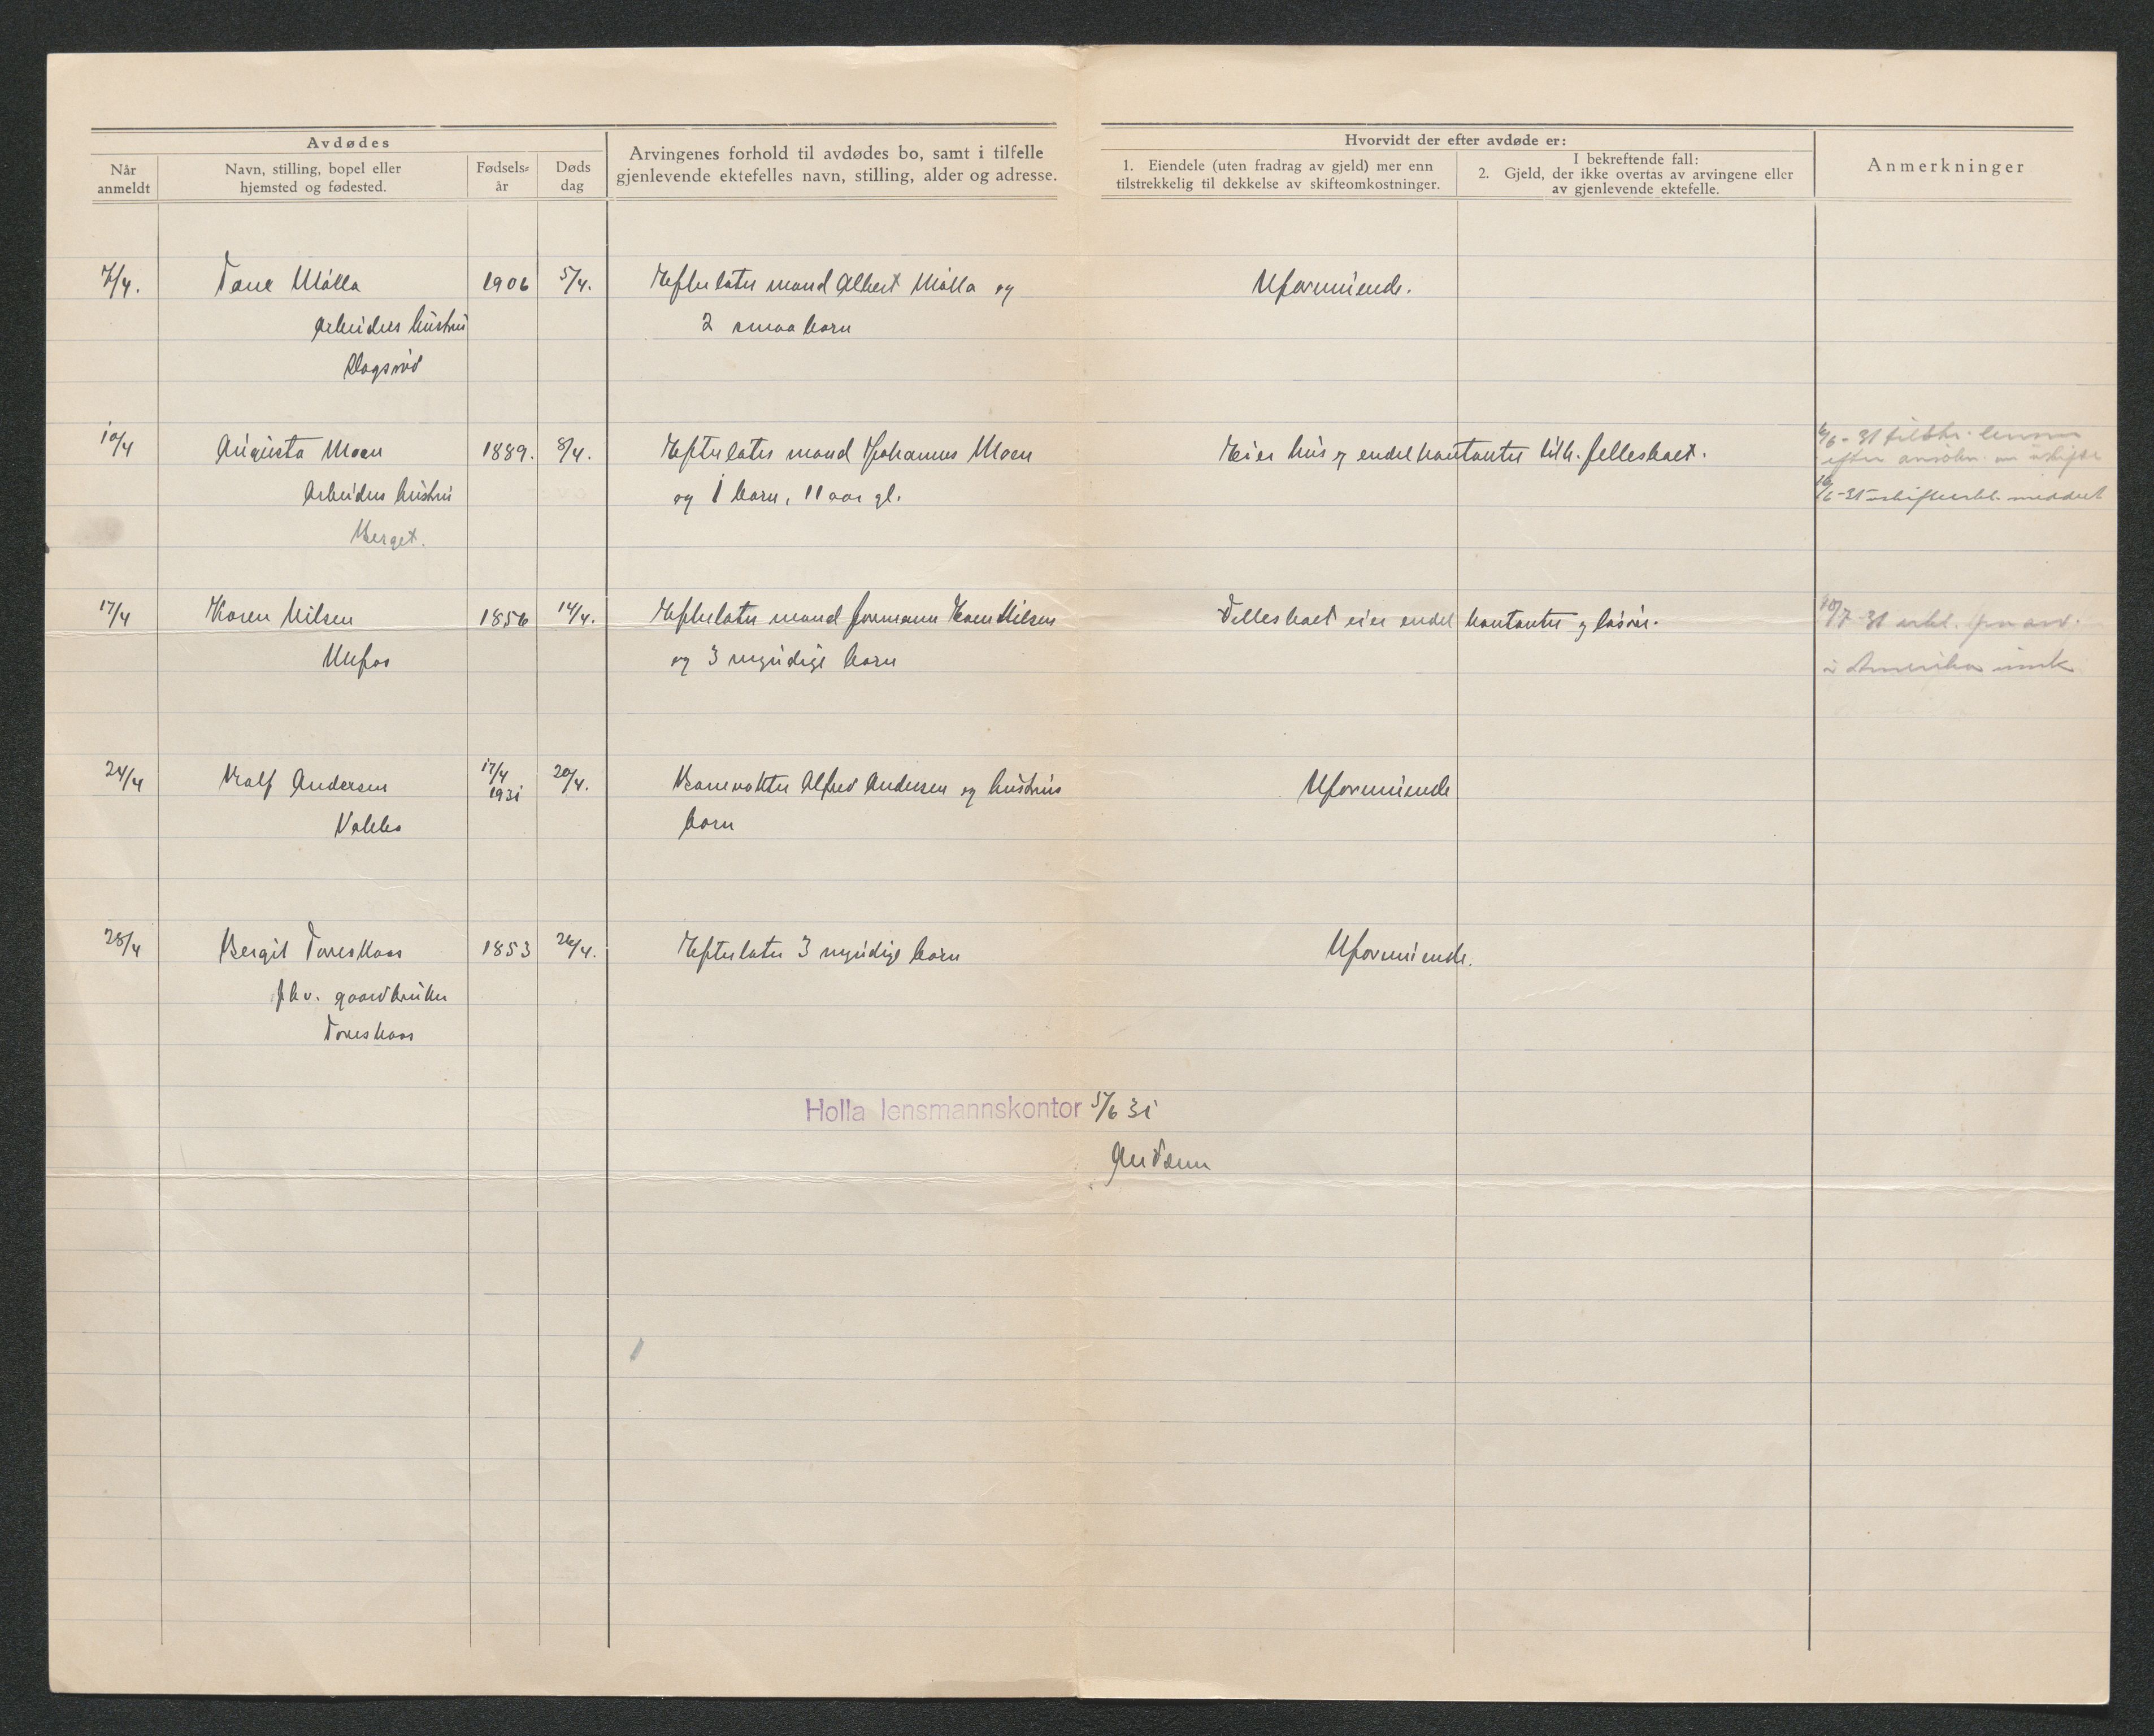 Avdødes
Når anmeldt
Navn, stilling, bopel eller hjemsted og fødested.
Fødsels-år
Døds dag
Arvingenes forhold til avdødes bo, samt i tilfelle
gjenlevende ektefelles navn, stilling, alder og adresse.
Hvorvidt der efter avdøde er:
1. Eiendele (uten fradrag av gjeld) mer enn
tilstrekkelig til dekkelse av skifteomkostninger.
I bekreftende fall:
2. Gjeld, der ikke overtas av arvingene eller
av gjenlevende ektefelle.
Anmerkninger
7/4. Tone Mølla 1906 5/4. Efterlater mand Albert Mølla og Uformuende.
Arbeiders hustru 2 smaa barn
10/4 Augusta Moen 1889. 8/4. Efterlater mand Johannes Moen Eier hus og endel kontanter tilh. fellesboet.
Arbeiders hustru og 1 barn, 11 aar gl.
Berget.
17/4 Karen Nilsen 1856 14/4. Efterlater mand formann Nilsen Fellesboet eier endel kontanter og løsøre.
Ulefos og 3 myndige barn i Amerika
24/4 Ralf Andersen 17/4 1931 20/4. Banevokter Alfred Andersen og hustrus Uformuende
barn
28/4 Bergit Toreskaas 1853 26/4. Efterlater 3 myndige barn Uformuende.
fhv. gaardbruker
Toreskaas
Holla lensmannskontor 5/6 31